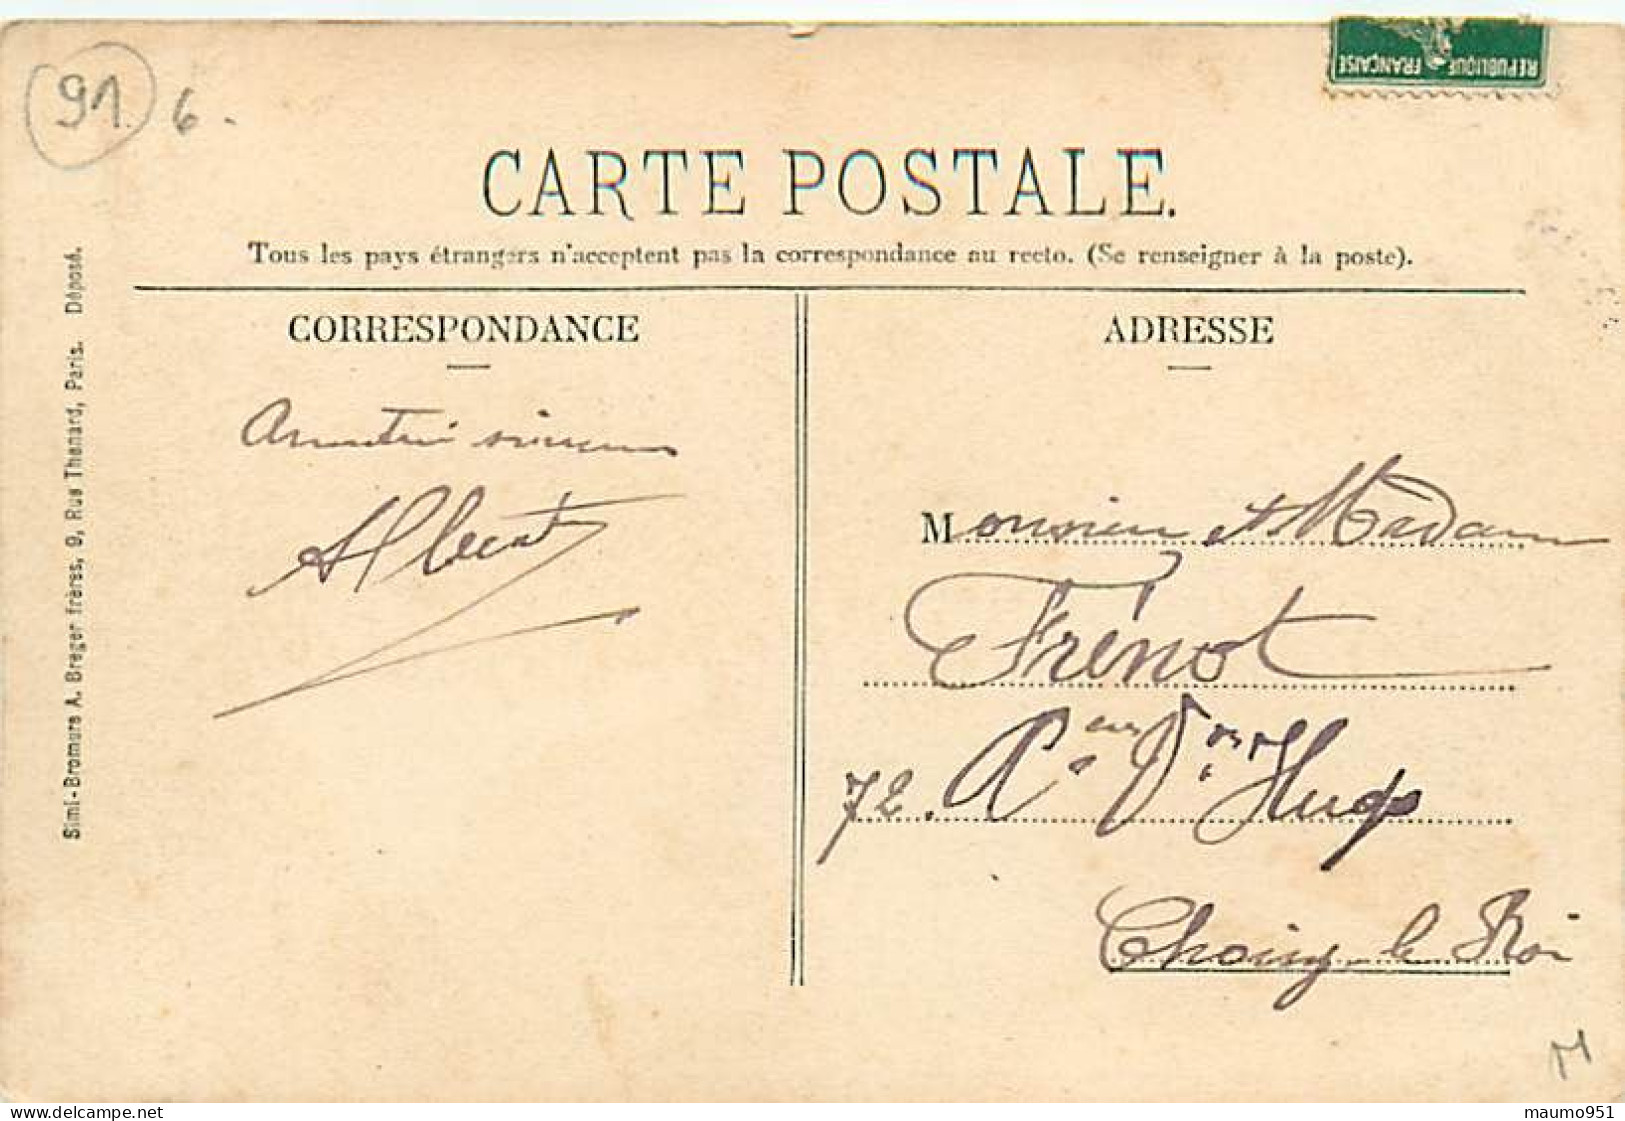 91 6.
REPUBLIQUE FRANÇAISE
CARTE POSTALE.
Tous les pays étrangers n'acceptent pas la correspondance au recto. (Se renseigner à la poste).
CORRESPONDANCE
Albert
Simi-Bromure A. Breger frères, 9, Rue Thenard, Paris. Déposé.
ADRESSE
Monsieur et Madame
Frénot
72. Hugo
Choisy le Roi
M
maumo951